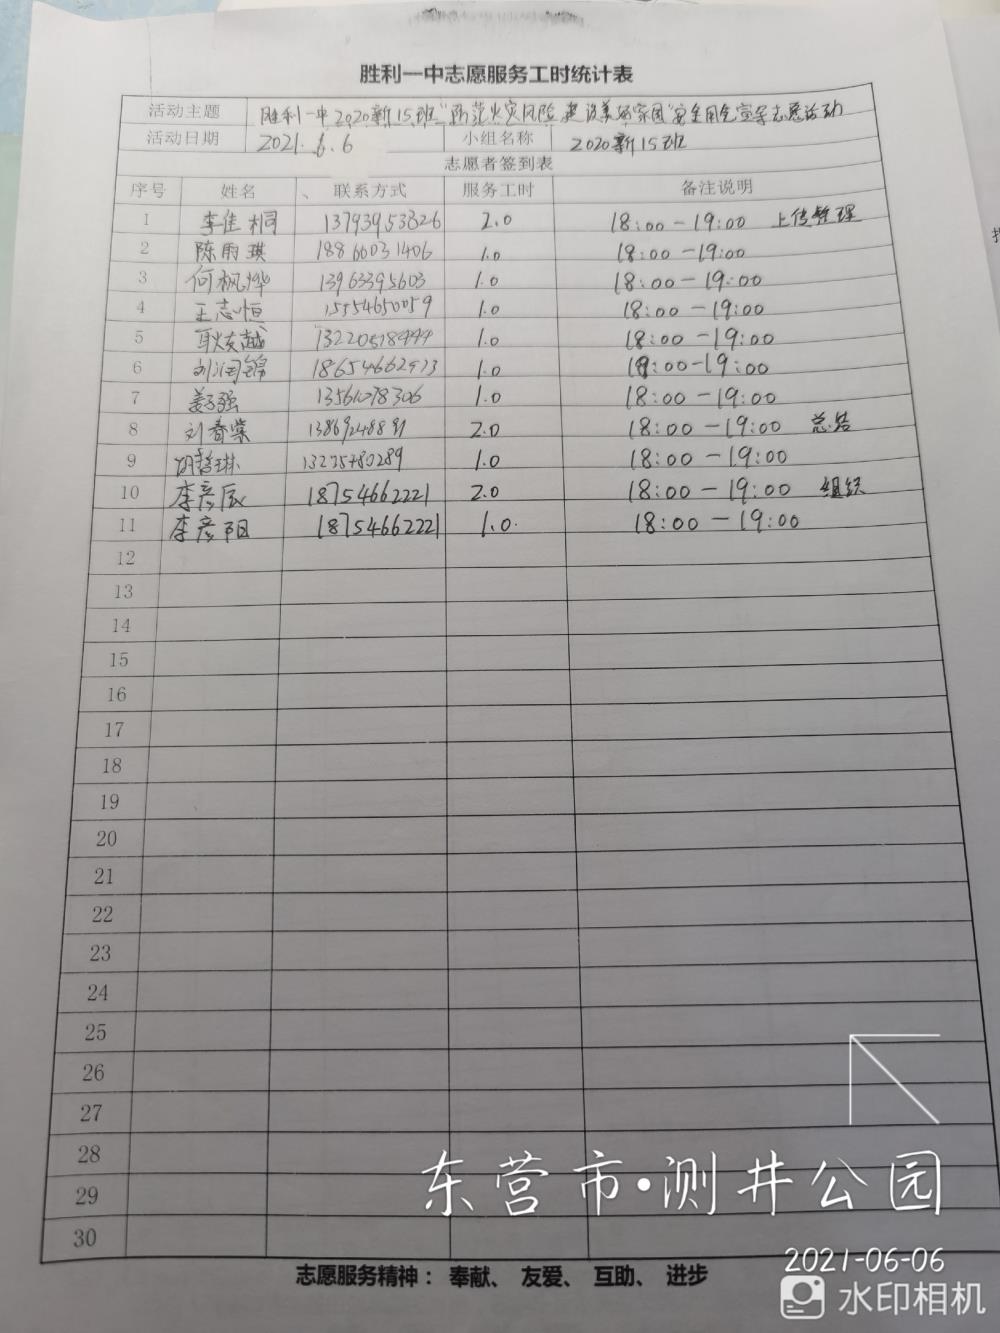 胜利一中志愿服务工时统计表
活动主题 胜利一中2020新15班"防范火灾风险 建设美好家园"安全用电宣导志愿活动
活动日期 2021.6.6 小组名称 2020新15班
志愿者签到表
序号 姓名 、 联系方式 服务工时 备注说明
1 李佳桐 13793953826 2.0 18:00-19:00 上传整理
2 陈雨琪 18866031406 1.0 18:00-19:00
3 何枫烨 13963395603 1.0 18:00-19:00
4 王志恒 15554650059 1.0 18:00-19:00
5 耿友越 1.0 18:00-19:00
6 刘润锦 1.0 18:00-19:00
7 姜子强 13561078306 1.0 18:00-19:00
8 刘春棠 2.0 18:00-19:00 总结
9 1.0 18:00-19:00
10 李彦辰 18754662221 2.0 18:00-19:00 组织
11 李彦阳 18754662221 1.0. 18:00-19:00
12
13
14
15
16
17
18
19
20
21
22
23
24
25
26
27
28
29
30
志愿服务精神： 奉献、 友爱、 互助、 进步
东营市·测井公园
2021-06-06
水印相机